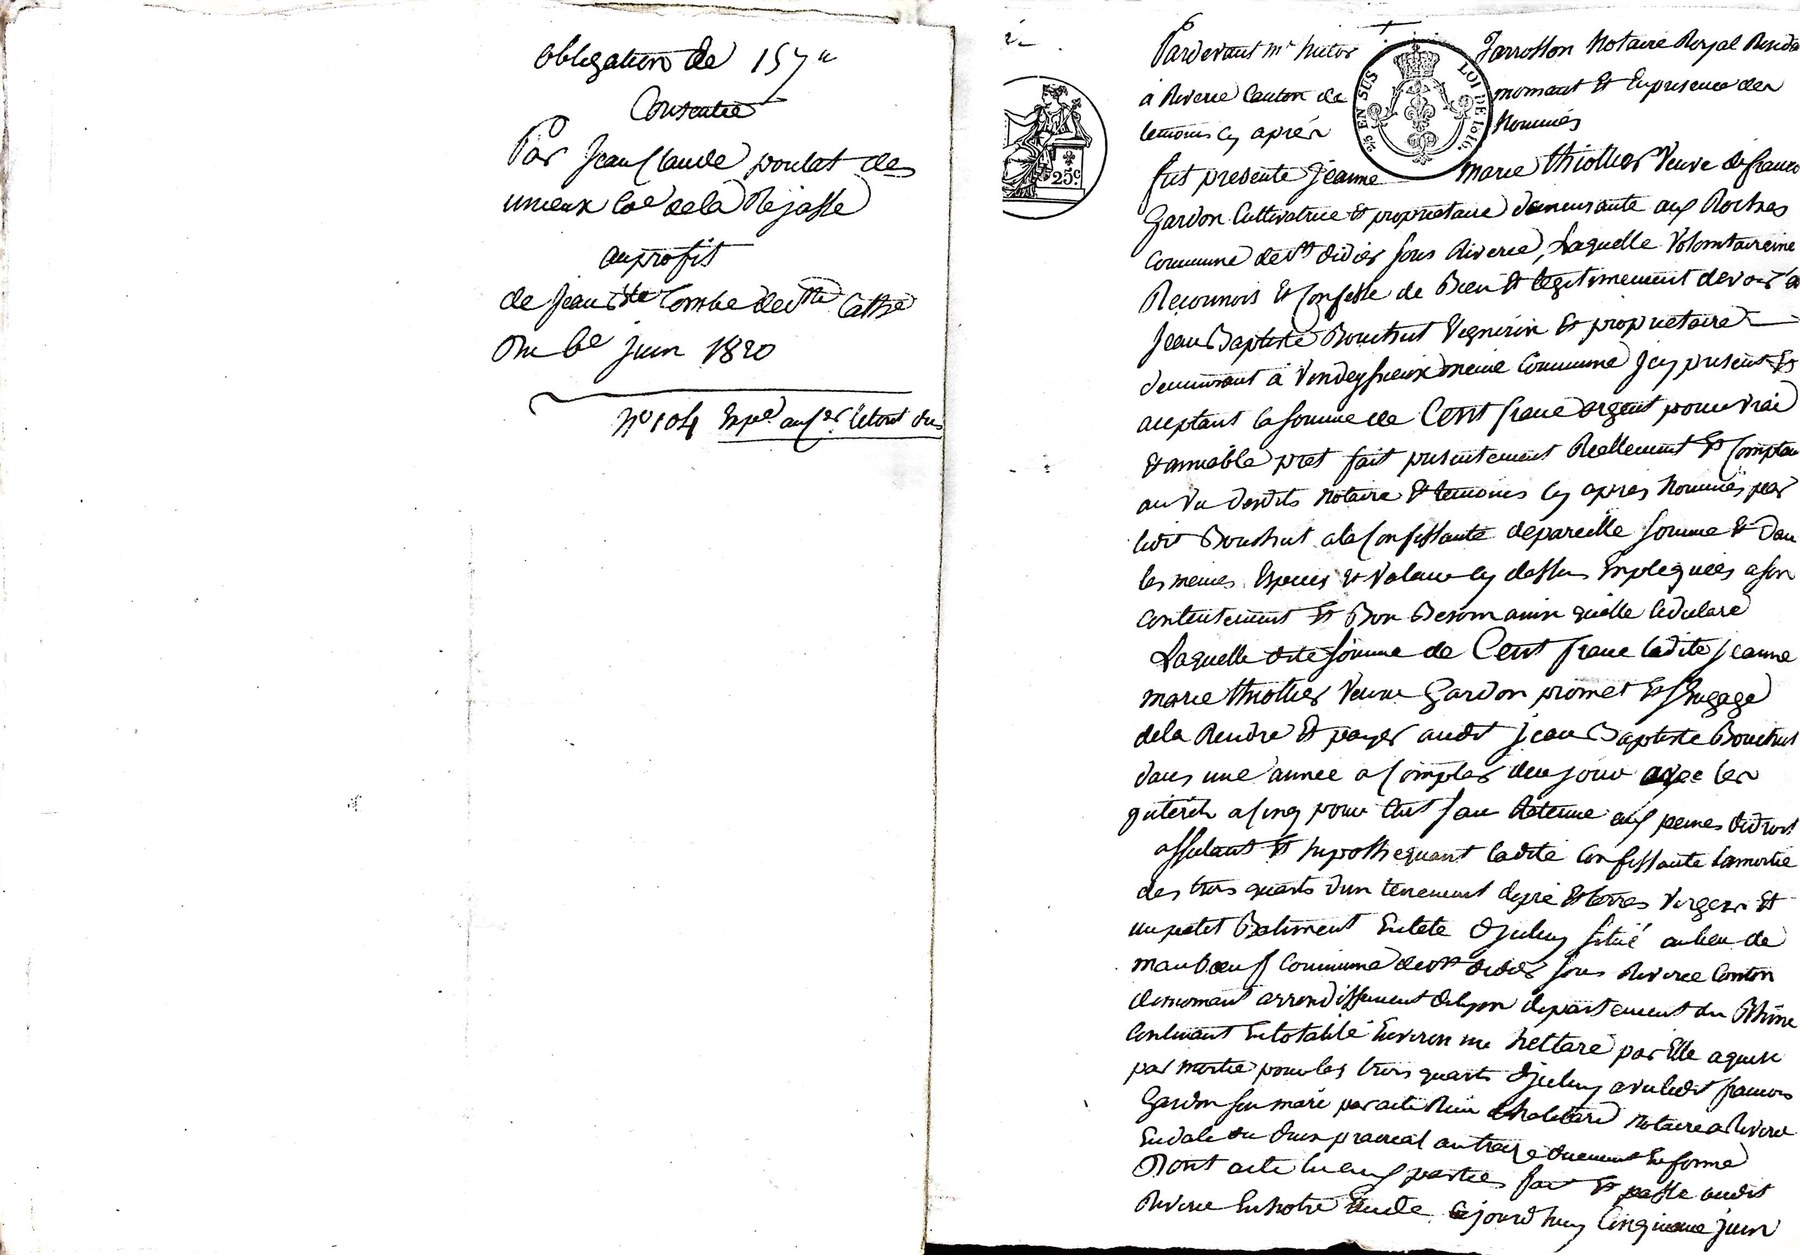 obligation de 157#
Consentie
Par Jean Claude poulat des
unieux Coe de la Rejasse
au profit
de Jean Bte Combe de Ste Cathe
Du 6e juin 1820
N° 104 Expe.
Pardevant me hector Jarrosson Notaire Royal Resida
à Riverie Canton de mornant Et En presence des
temoins cy après Nommés
25 EN SUS LOI DE 1816
25c
fut presente Jeanne marie thiollier Veuve de francois
Gardon Cultivatrice et propriétaire demeurante aux Roches
Commune de St didier sous Riverie, Laquelle Volontaireme
Reconnois Et Confesse de Bien Et légitimement devoir a
Jean Baptiste Bouchut Vigneron Et propriétaire
demeurant à même Commune Icy present Et
aceptant la somme de Cent franc argent pour vrai
Et amiable pret fait presentement Réellement Et Comptan
au Vu desdits Notaire Et temoins cy après Nommés par
ledit Bouchut a la Confessante de pareille somme Et dan
les memes Especes et Valeur cy dessus Expliquées a son
contentement Et Bon Besoin ainsi quelle le declare
Laquelle dite somme de Cent franc ladite Jeanne
marie thiollier Veuve Gardon promet Et s'Engage
de la Rendre Et payer audt Jean Baptiste Bouchut
dans une année a Compter de ce jour avec les
interets a Cinq pour Cent sans Retenue aux peines de droit
assurant Et hypothequant ladite Confessante la moitié
des trois quarts d'un tenement de pré Et terres Verger Et
un petit Batiment En tete d'jceluy situé au lieu de
mauboeuf Commune de St didier sous Riverie Canton
de mornant arrondissement de Lyon departement du Rhône
Contenant En totalité Environ un hettare par Elle aquise
par moitié pour les trois quarts d'jceluy avec ledit francois
Gardon son mari par acte Reçu Notaire a Riverie
En date du deux prairial an treize duement En forme
Dont acte lu aux parties fait Et passé audit
Riverie En notre Etude Cejourdhuy Cinquieme juin